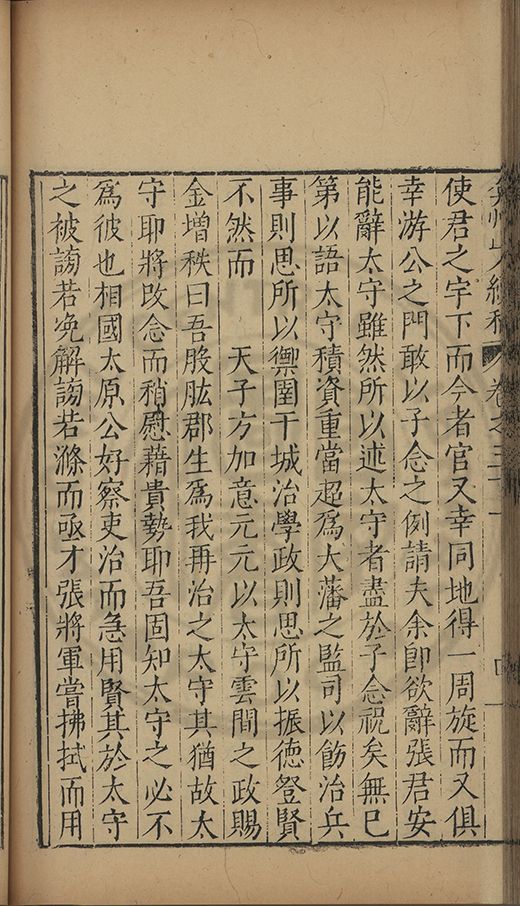 弇州山人續稿 卷之三十一
使君之宇下而今者官又幸同地得一周旋而又俱
幸游公之門敢以子念之例請夫余卽欲辭張君安
能辭太守雖然所以述太守者盡於子念祝矣無已
第以語太守積資重當超爲大藩之監司以飭治兵
事則思所以禦圉干城治學政則思所以振德登賢
不然而 天子方加意元元以太守雲間之政賜
金增秩曰吾股肱郡生爲我再治之太守其猶故太
守耶將改念而稍慰藉貴勢耶吾固知太守之必不
爲彼也相國太原公好察吏治而急用賢其於太守
之被謗若浼解謗若滌而亟才張將軍嘗拂拭而用